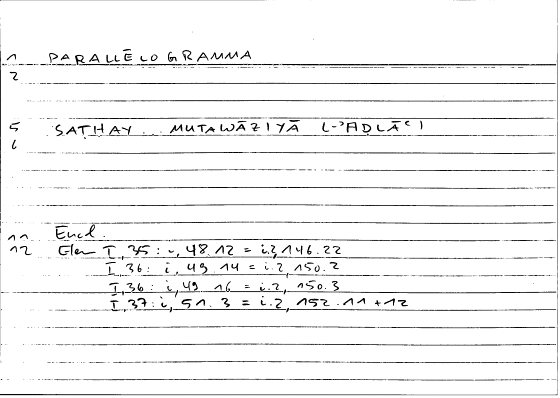 1 PARALLĒLOGRAMMA
2
5 SATHAY... MUTAWĀZIYĀ L-ʾADLĀʿI
6
11 Eucl.
12 Elem I, 35: i, 48.12 = i.2, 146.22
I, 36: i, 49 14 = i.2, 150.2
I, 36: i, 49 16 = i.2, 150.3
I, 37: i, 51. 3 = i.2, 152.11 +12